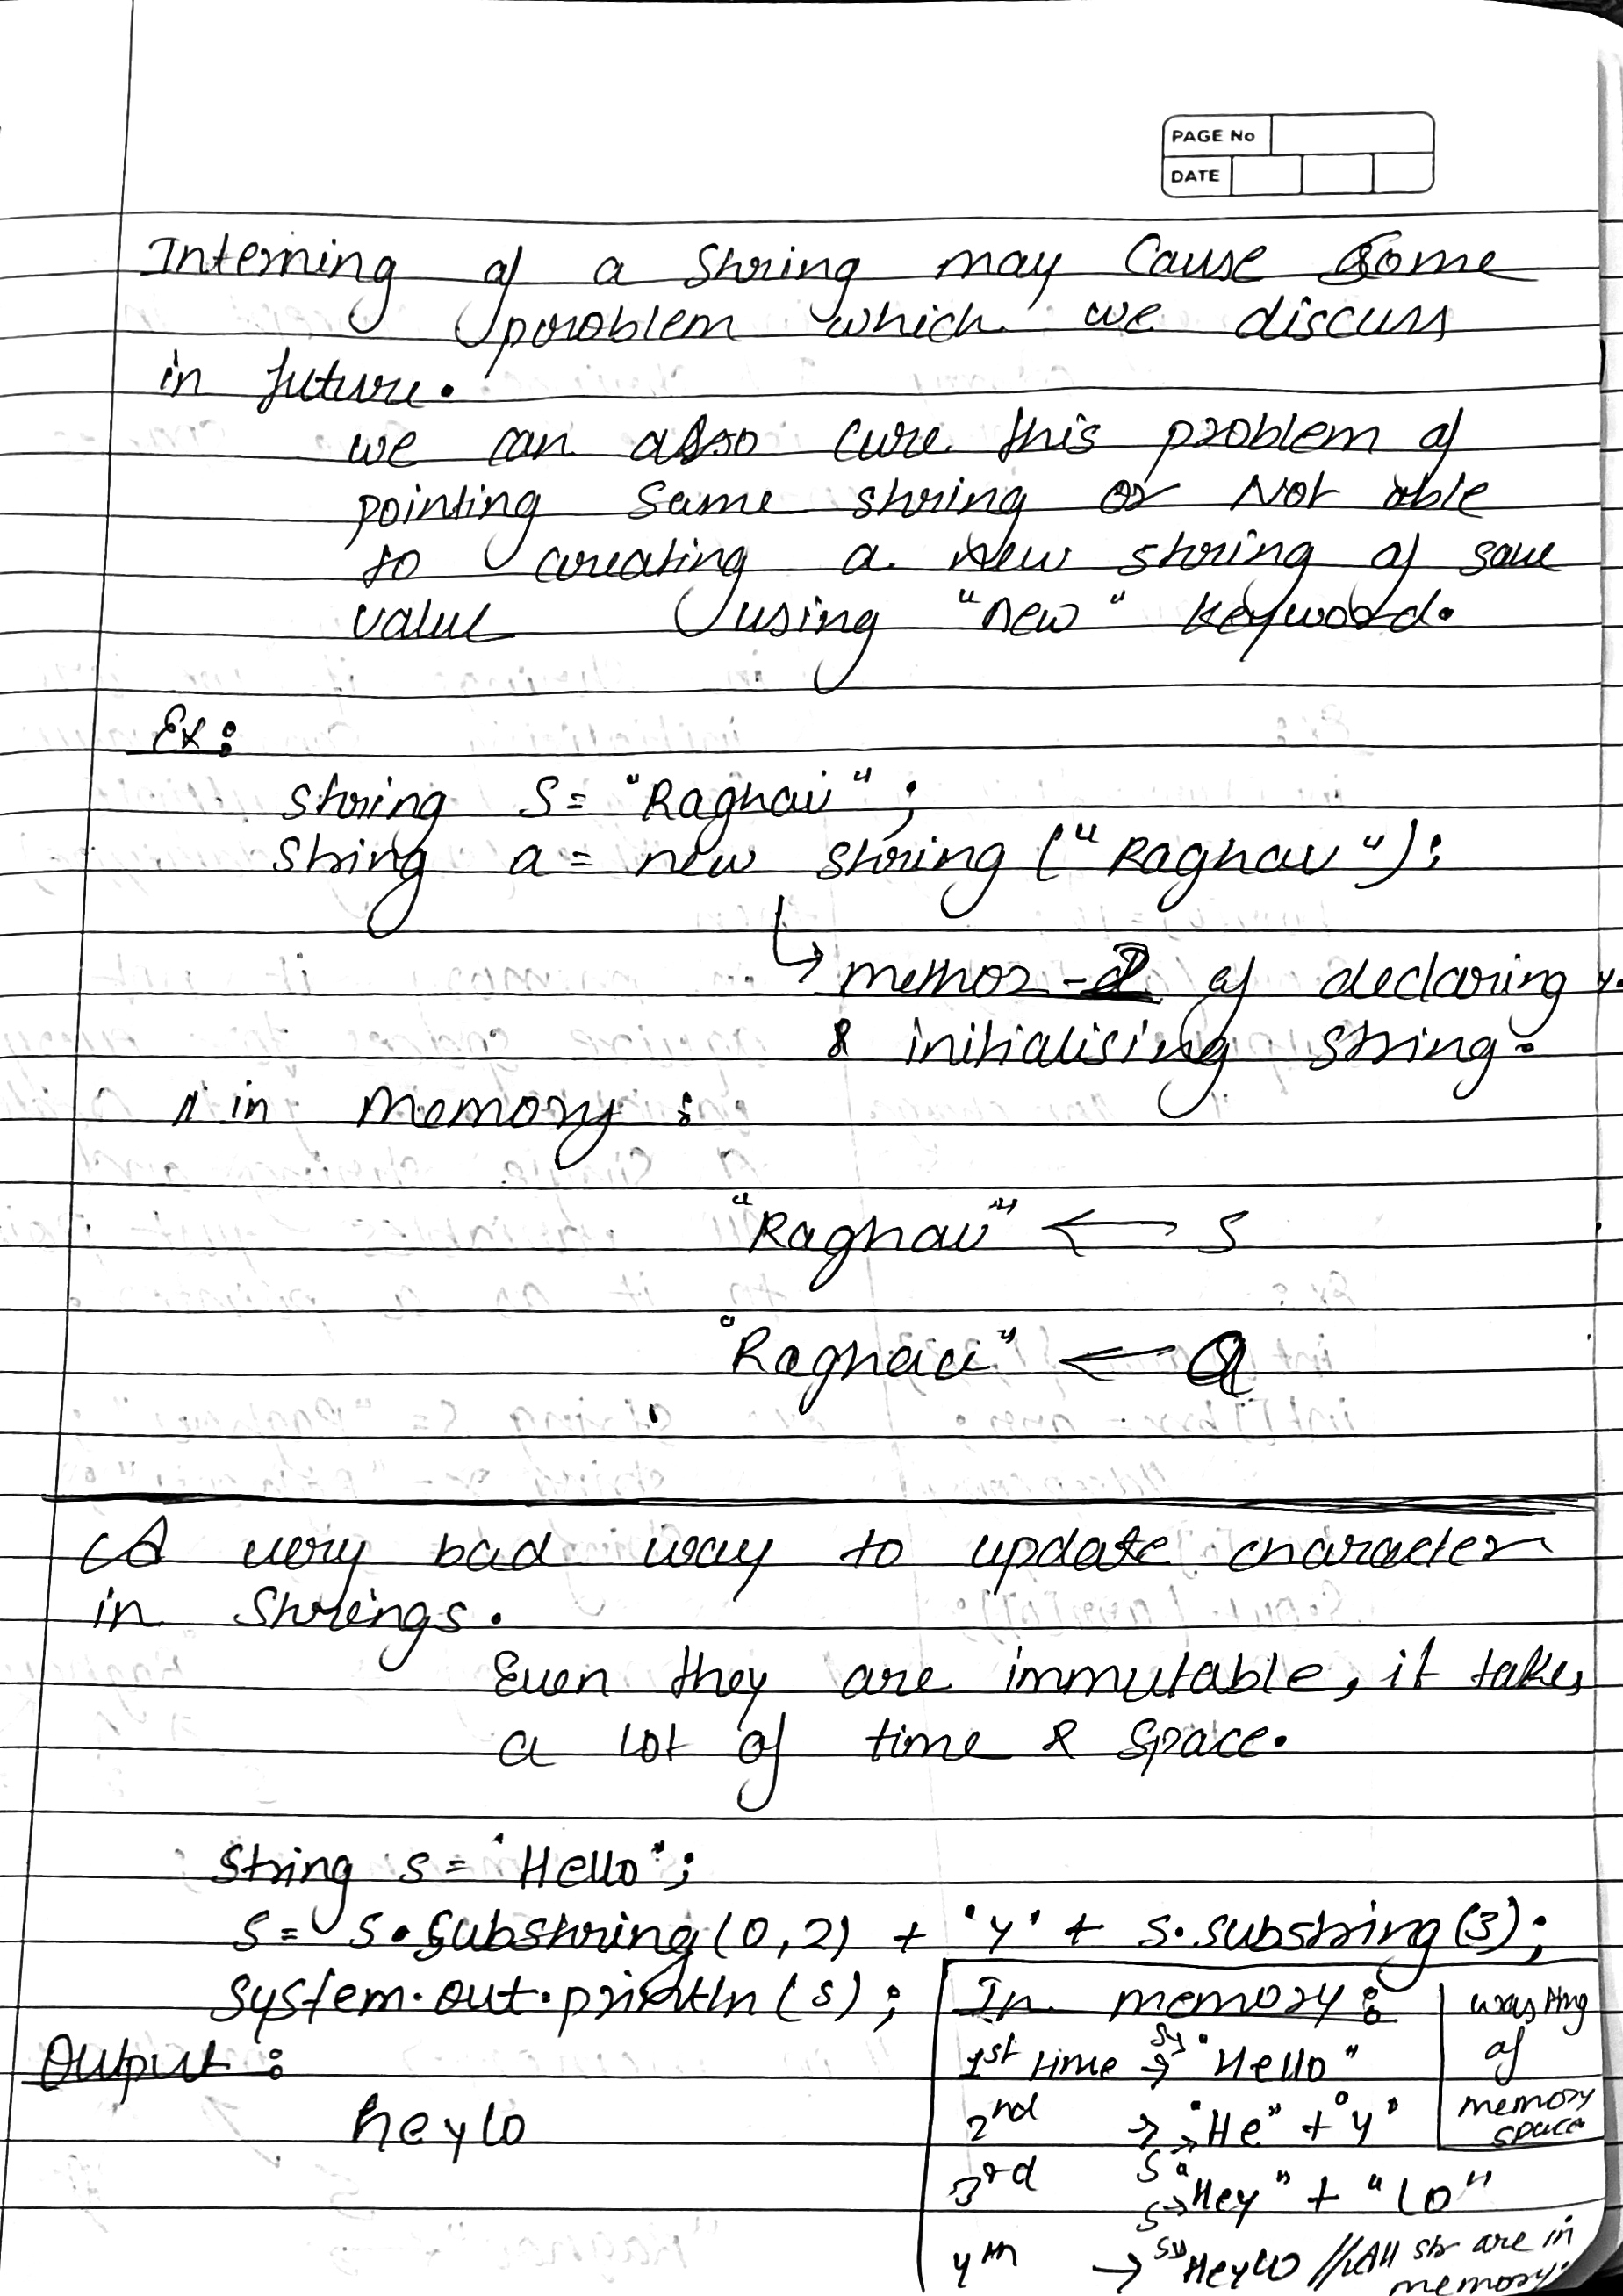 PAGE No
DATE
Interning of a string may cause some
problem which we discuss
in future.
we can also cure this problem of
pointing same string or Not able
to creating a new string of same
value using "new" keyword.
Ex:
string S= "Raghav";
String a = new string ("Raghav");
↳ method-2 of declaring
& initialising string.
in memory:
"Raghav" ← S
"Raghav" ← a
A very bad way to update character
in Strings.
Even they are immutable, it takes
a lot of time & space.
String s = "Hello";
S = S.substring(0,2) + 'y' + s.substring(3);
System.out.println(s);
Output:
heylo
In memory:
1st time S→ "Hello"
2nd → "He" + "y"
3rd S→ "Hey" + "lo"
4th → Heylo // All str are in
memory.
wasting
of
memory
space